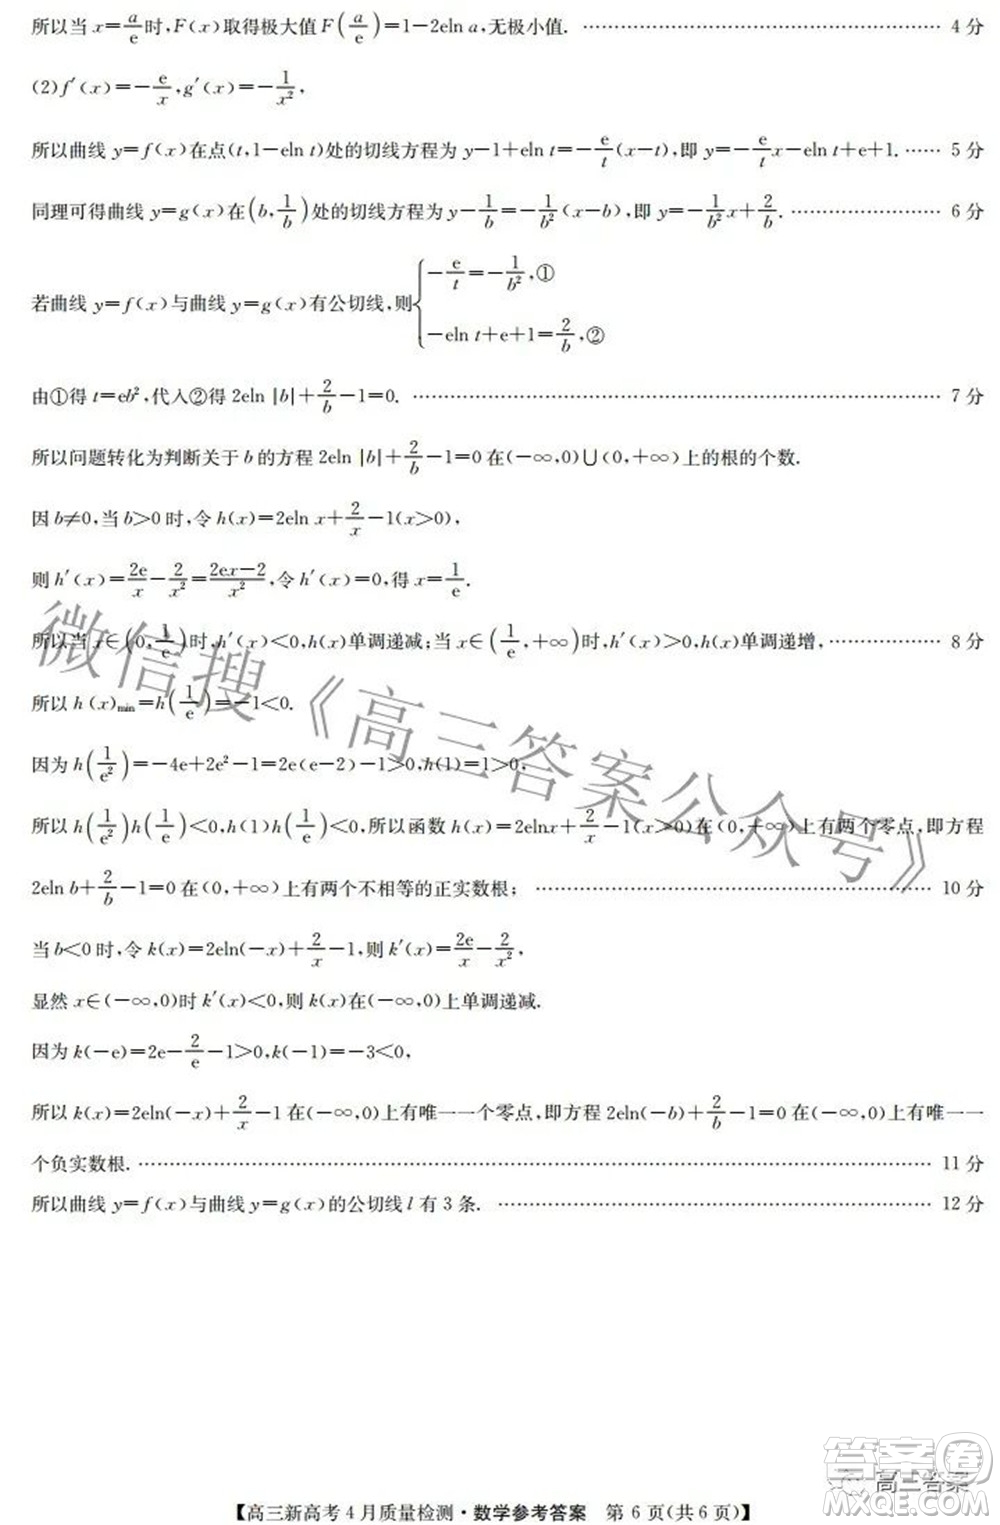 所以当 x=a/e 时,F(x)取得极大值 F(a/e)=1-2eln a,无极小值. …………………… 4 分
(2)f′(x)=-e/x,g′(x)=-1/x²,
所以曲线 y=f(x)在点(t,1-eln t)处的切线方程为 y-1+eln t=-e/t(x-t),即 y=-e/t x-eln t+e+1. …… 5 分
同理可得曲线 y=g(x)在(b,1/b)处的切线方程为 y-1/b=-1/b²(x-b),即 y=-1/b² x+2/b. …………………… 6 分
若曲线 y=f(x)与曲线 y=g(x)有公切线,则{-e/t=-1/b²,①
-eln t+e+1=2/b,②
由①得 t=eb²,代入②得 2eln |b|+2/b-1=0. …………………… 7 分
所以问题转化为判断关于 b 的方程 2eln |b|+2/b-1=0 在(-∞,0)∪(0,+∞)上的根的个数.
因 b≠0,当 b>0 时,令 h(x)=2eln x+2/x-1(x>0),
则 h′(x)=2e/x-2/x²=(2ex-2)/x²,令 h′(x)=0,得 x=1/e.
所以当 x∈(0,1/e)时,h′(x)<0,h(x)单调递减;当 x∈(1/e,+∞)时,h′(x)>0,h(x)单调递增, ……………… 8 分
所以 h(x)min=h(1/e)=-1<0.
因为 h(1/e²)=-4e+2e²-1=2e(e-2)-1>0,h(1)=1>0,
所以 h(1/e²)h(1/e)<0,h(1)h(1/e)<0,所以函数 h(x)=2elnx+2/x-1(x>0)在(0,+∞)上有两个零点,即方程
2eln b+2/b-1=0 在(0,+∞)上有两个不相等的正实数根; …………………… 10 分
当 b<0 时,令 k(x)=2eln(-x)+2/x-1,则 k′(x)=2e/x-2/x²,
显然 x∈(-∞,0)时 k′(x)<0,则 k(x)在(-∞,0)上单调递减.
因为 k(-e)=2e-2/e-1>0,k(-1)=-3<0,
所以 k(x)=2eln(-x)+2/x-1 在(-∞,0)上有唯一一个零点,即方程 2eln(-b)+2/b-1=0 在(-∞,0)上有唯一一
个负实数根. …………………… 11 分
所以曲线 y=f(x)与曲线 y=g(x)的公切线 l 有 3 条. …………………… 12 分
微信搜《高三答案公众号》
答案圈
高三答案
MXQE.COM
【高三新高考4月质量检测·数学参考答案 第 6 页(共 6 页)】